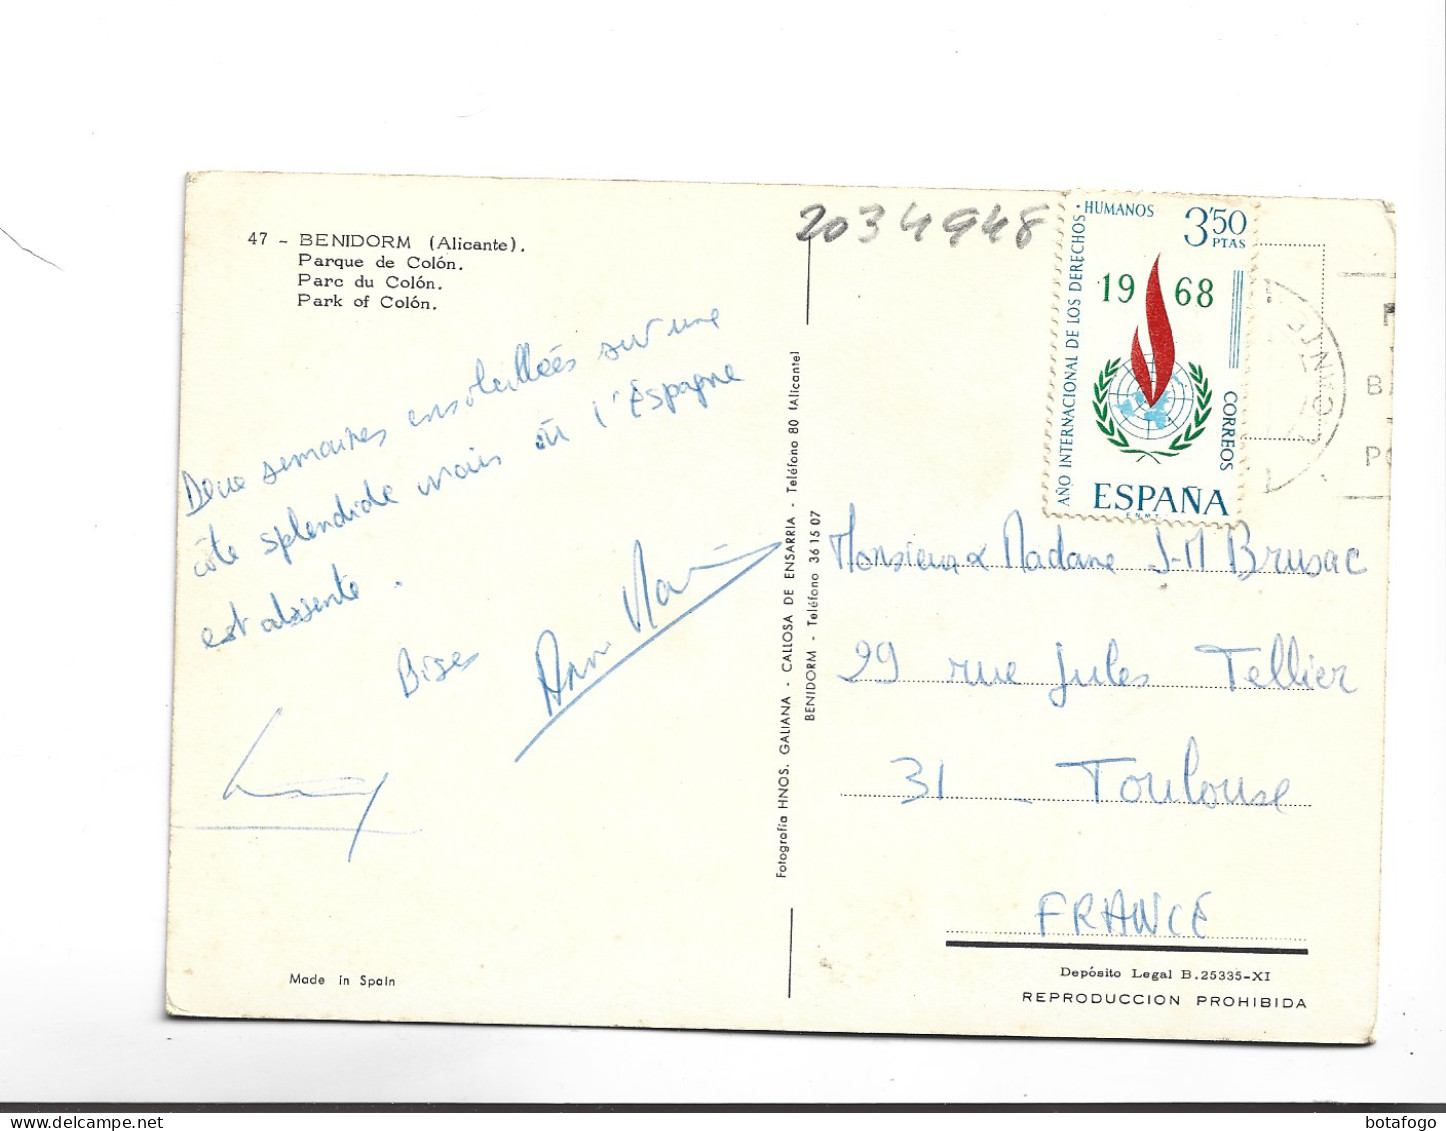 47 - BENIDORM (Alicante).
Parque de Colón.
Parc du Colón.
Park of Colón.
Deux semaines ensoleillées sur une
côte splendide mais où l'Espagne
est absente.
Bises
Fotografía HNOS. GALIANA - CALLOSA DE ENSARRIA - Teléfono 80 (Alicante)
BENIDORM - Teléfono 36 15 07
2034948
AÑO INTERNACIONAL DE LOS DERECHOS · HUMANOS
3'50
PTAS
1968
CORREOS
ESPAÑA
F.N.M.T.
Monsieur & Madame J-M Brusac
29 rue Jules Tellier
31 - Toulouse
FRANCE
Made in Spain
Depósito Legal B.25335-XI
REPRODUCCION PROHIBIDA
delcampe.net
botafogo